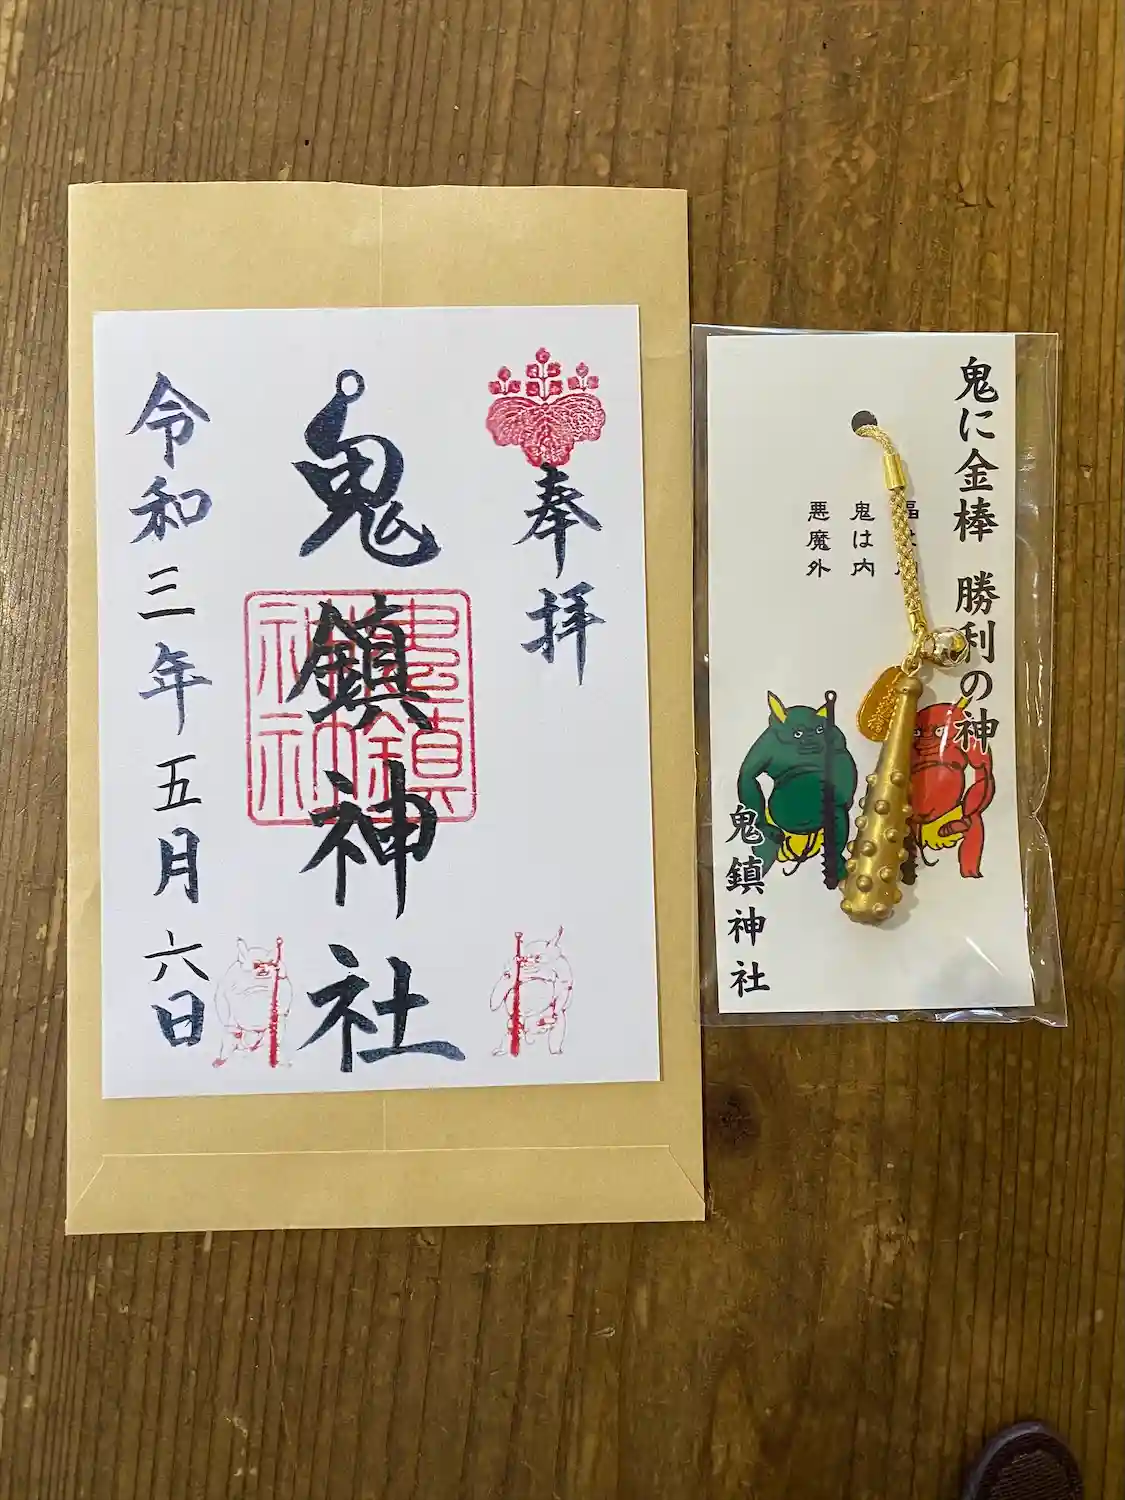 奉拝
鬼鎮神社
鬼鎮神社
令和三年五月六日
鬼に金棒 勝利の神
鬼は内
悪魔外
鬼鎮神社